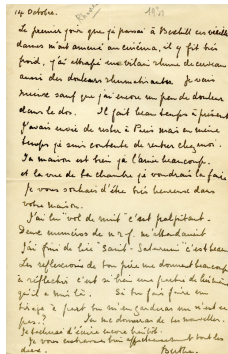 14 Octobre.
Le premier jour que j'ai passé à Bexhill ces vieilles
dames m'ont amené au cinéma, il y fit très
froid, j'ai attrapé un vilain rhume de cerveau
aussi des douleurs rhumatisantes. Je vais
mieux sauf que j'ai encore un peu de douleur
dans le dos. Il fait beau temps à présent
J'avais envie de rester à Paris mais en même
temps je suis contente de rentrer chez moi.
Ta maison est bien je l'aime beaucoup.
et la vue de ta chambre je voudrais la faire
Je vous souhais d'être très heureuse dans
votre maison.
J'ai lu "vol de nuit" c'est palpitant.
Deux numéros de n r f. m'attendaient
J'ai fini de lire "Saint-Saturnin" c'est beau
Les reflexions de ton père me donnent beaucoup
à réflechir c'est si bien une piste de lumière
qu'il a mis là. Si tu fais faire un
tirage à part tu m'en garderas un n'est ce
pas? Tu me donneras de tes nouvelles.
Je tacherai d'écrire encore bientôt.
Je vous embrasse bien affectueusement tout les
deux. Berthe.